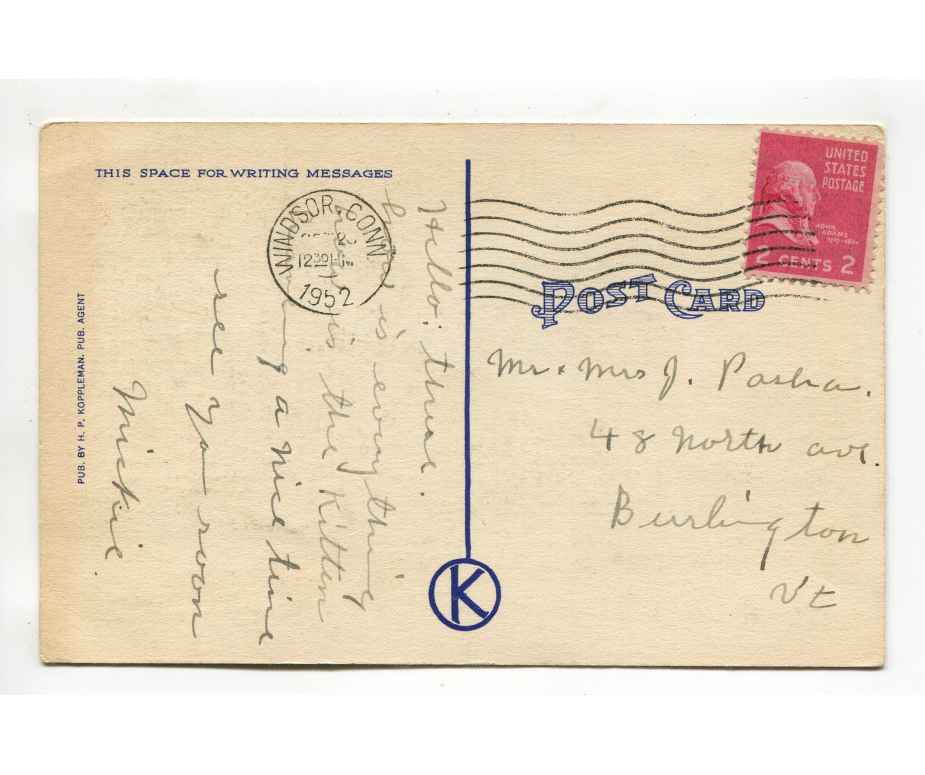 THIS SPACE FOR WRITING MESSAGES
WINDSOR, CONN
1952
UNITED
STATES
POSTAGE
JOHN
ADAMS
2 CENTS 2
POST CARD
Hello: there.
is everything
is the Kitten
a nice time
see you soon
Mickie
Mr. Mrs J. Pasha.
48 North ave.
Burlington
Vt
PUB. BY H. P. KOPPLEMAN. PUB. AGENT
K